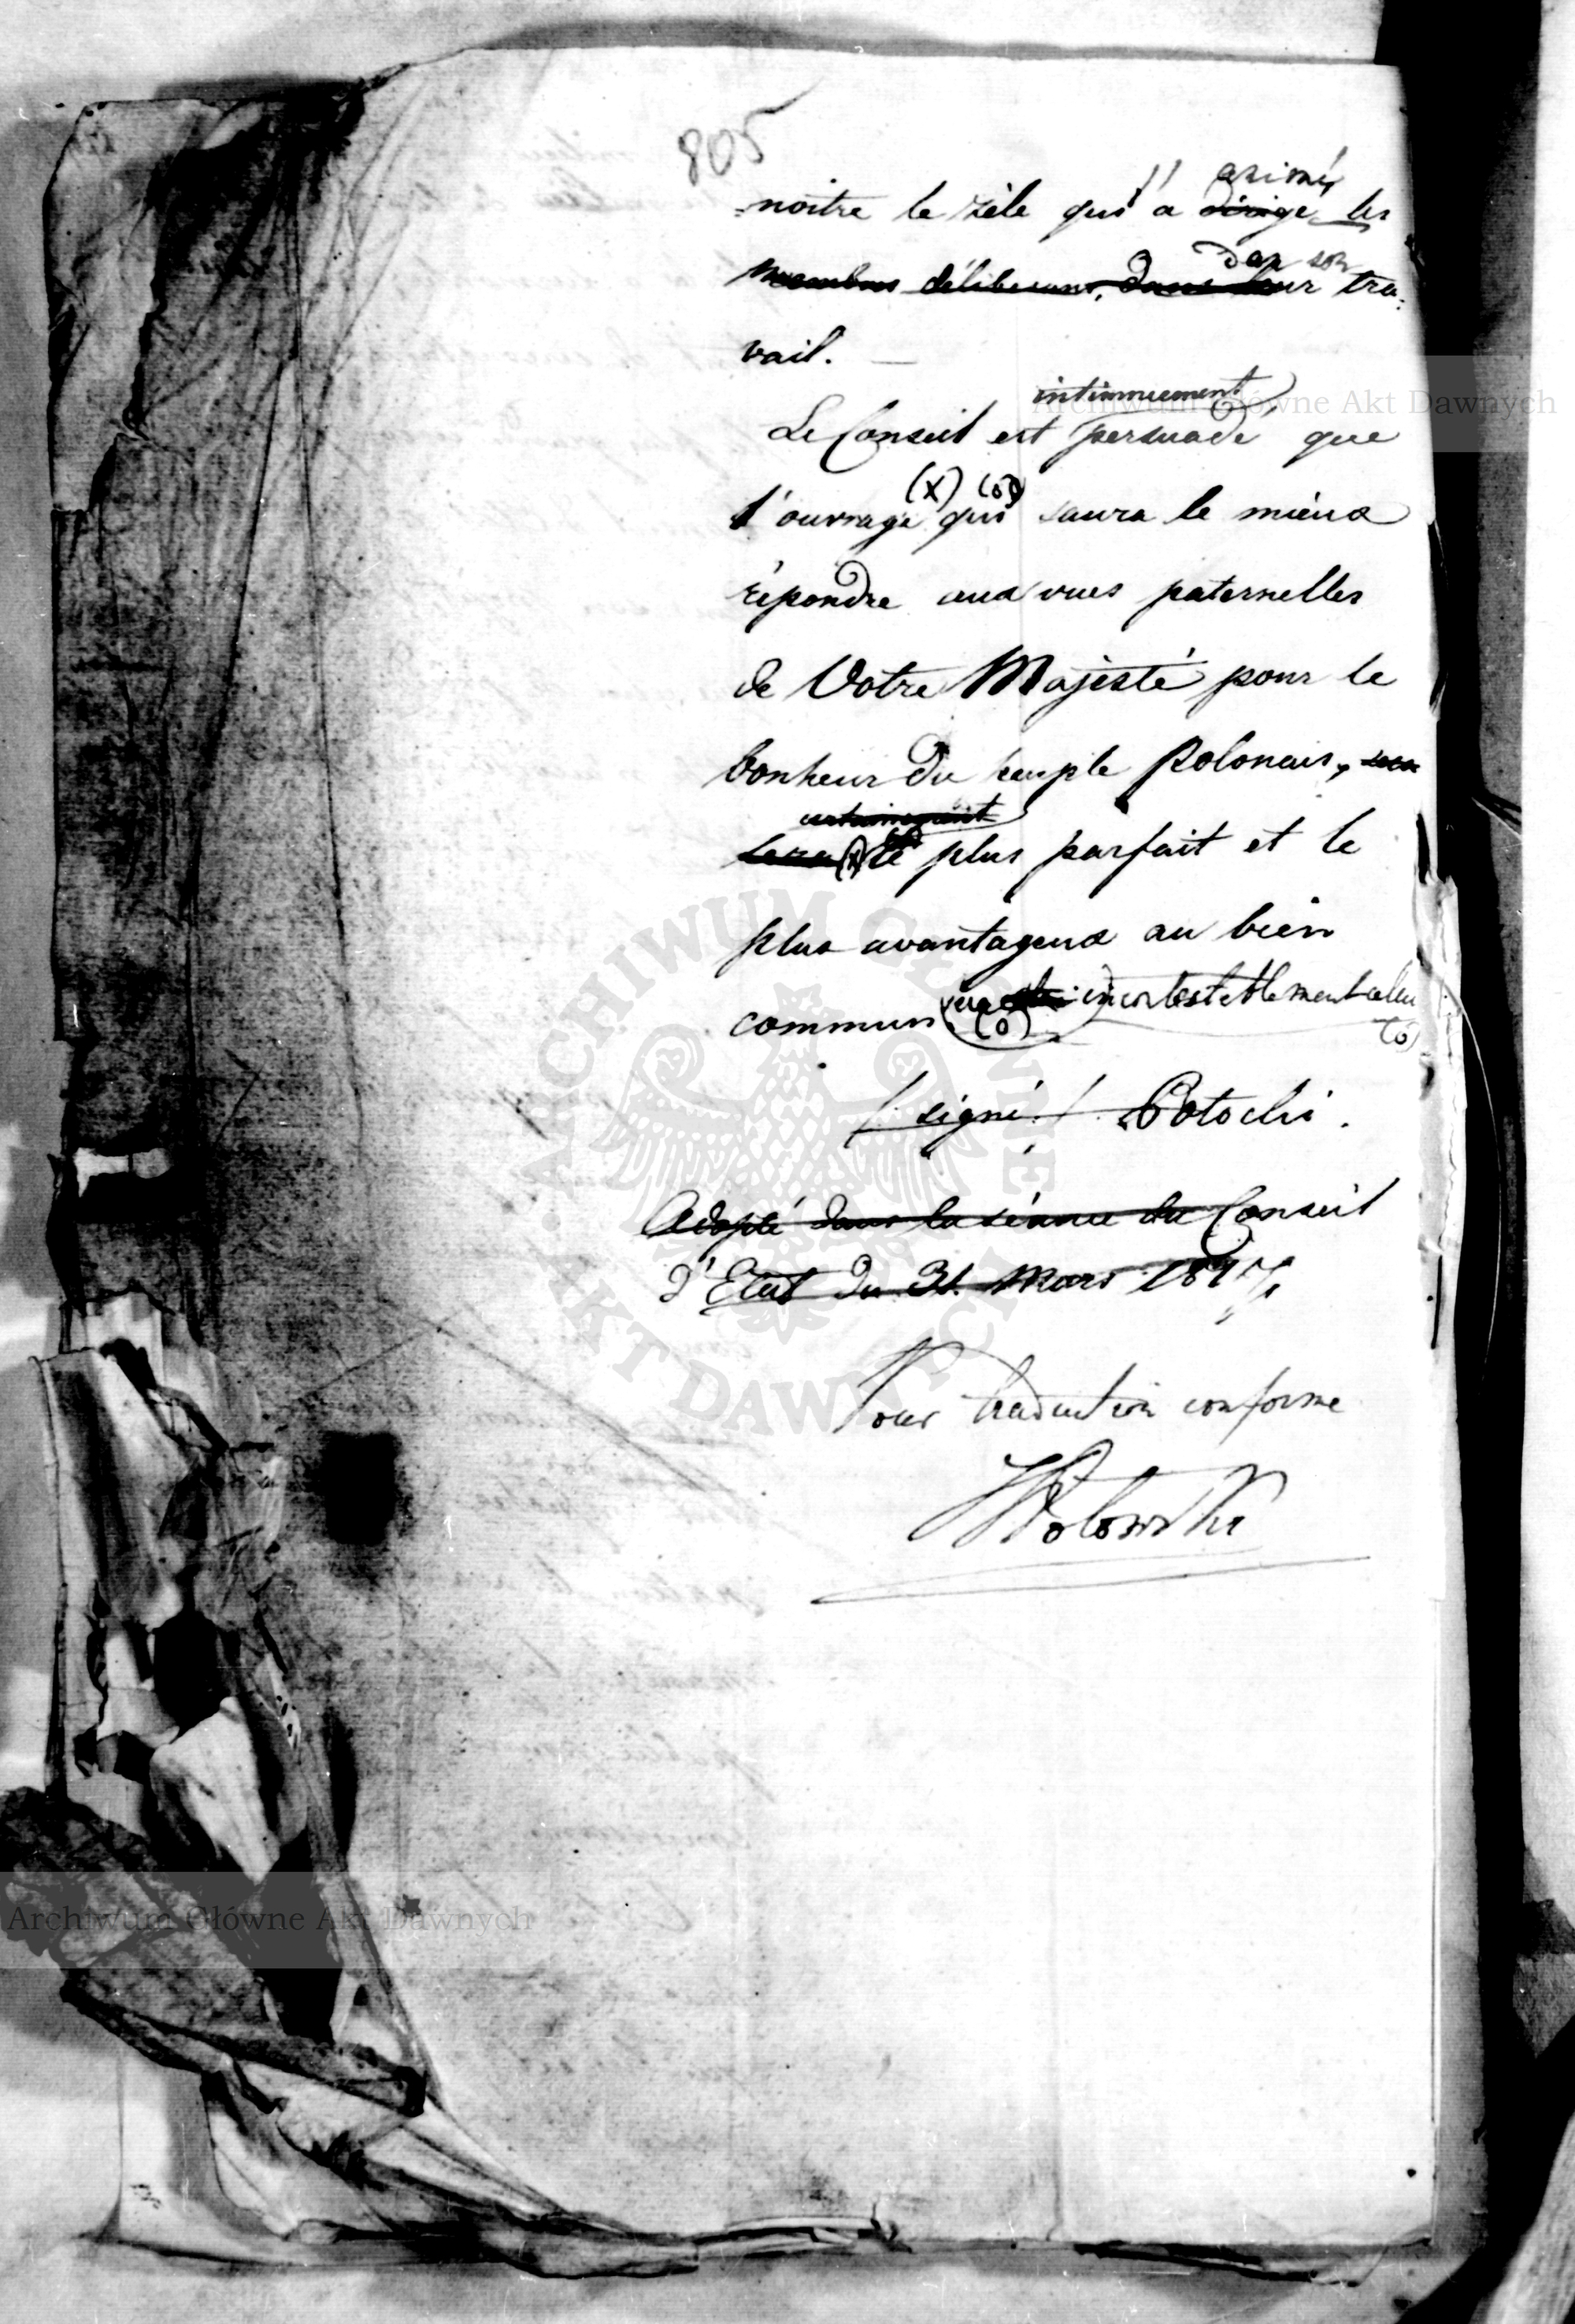 805
animé
=noitre le zèle qui l'a dirigé les
dans son
membres délibérans, dans leur tra=
vail. —
intimement
Le Conseil est persuadé que
(x) (o)
l'ouvrage qui saura le mieux
répondre aux vues paternelles
de Votre Majesté pour le
bonheur du peuple Polonais,
certainement
sera (x) le plus parfait et le
plus avantageux au bien
commun sera incontestablement celui
(o) (o)
/: signé :/ Potocki.
Adopté dans la séance du Conseil
d'Etat du 31. Mars 181
Pour traduction conforme
Wolowski
Archiwum Główne Akt Dawnych
ARCHIWUM GŁÓWNE AKT DAWNYCH
Archiwum Główne Akt Dawnych